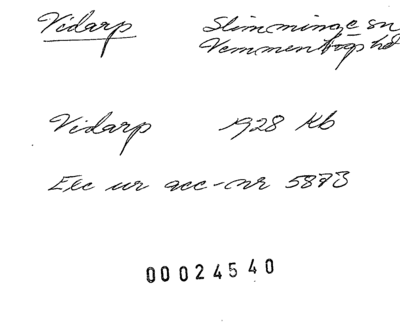 Vidarp Slimminge sn
Vemmenhögs hd
Vidarp 1928 Kb
Exc ur acc-nr 5873
00024540